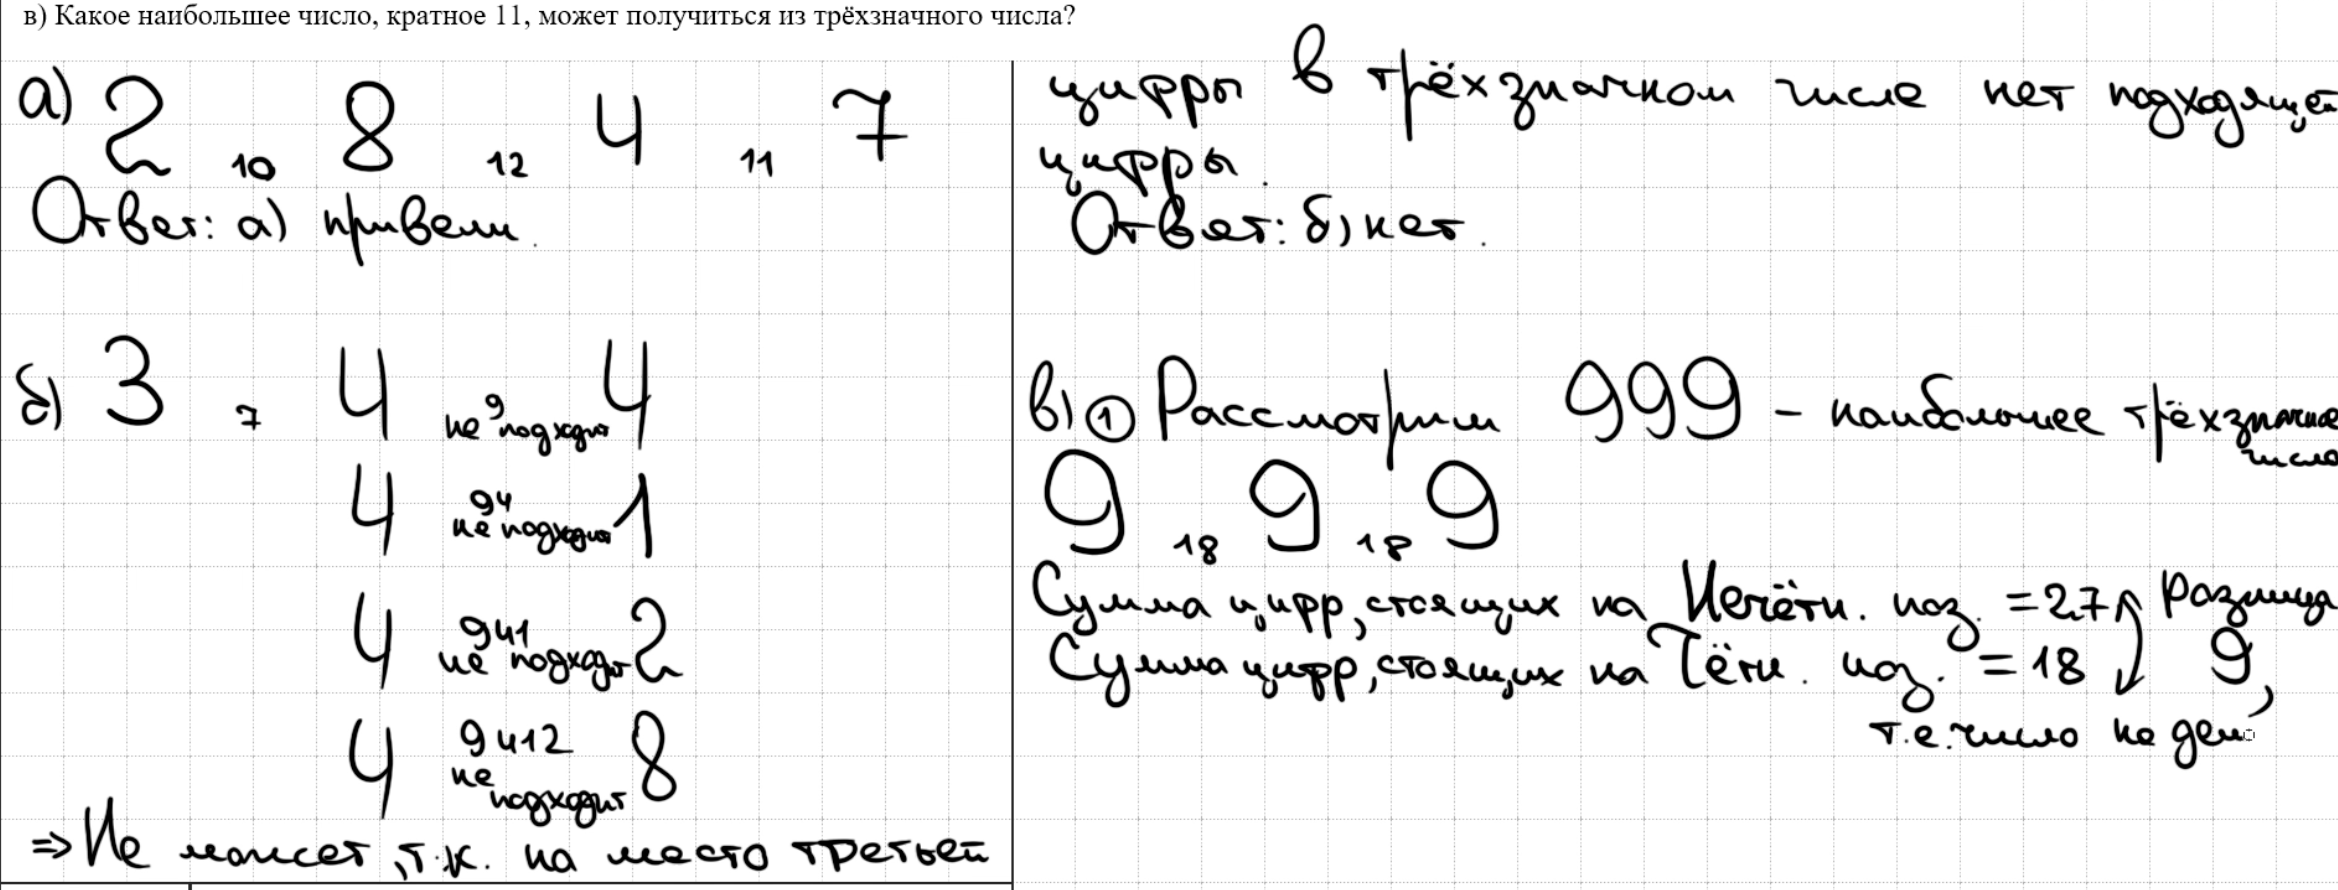 в) Какое наибольшее число, кратное 11, может получиться из трёхзначного числа?
а) 2 10 8 12 4 11 7
Ответ: а) привели.
б) 3 7 4 9 4
не подходит
4 94 1
не подходит
4 941 2
не подходит
4 9412 8
не
подходит
=> Не может, т.к. на место третьей
цифры в трёхзначном числе нет подходящей
цифры.
Ответ: б) нет.
в) ① Рассмотрим 999 – наибольшее трёхзначное
число
9 18 9 18 9
Сумма цифр, стоящих на Нечётн. поз. = 27 Разница
Сумма цифр, стоящих на Чётн. поз. = 18 9,
т.е. число не дели